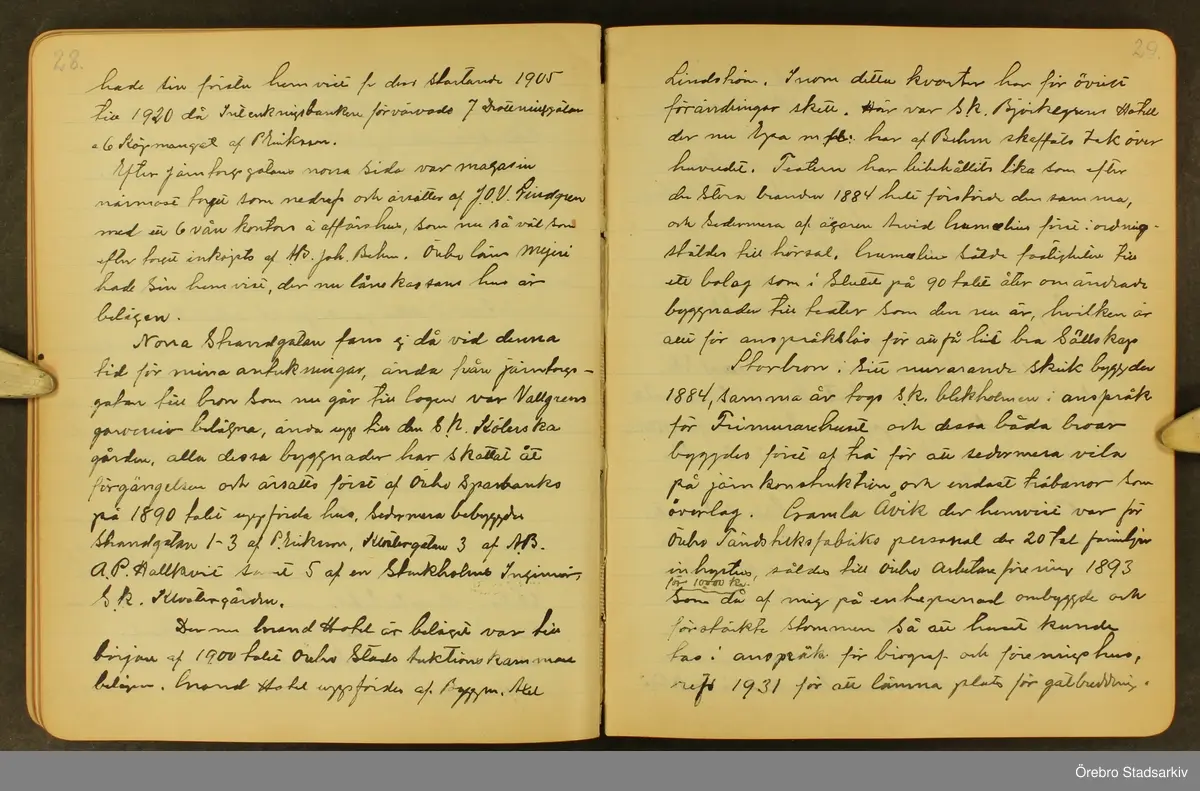 28.
hade sin första hemvist fr dess startande 1905
till 1920 då Inteckningsbanken förvärvade 7 Drottninggatan
o 6 Köpmangat af P. Eriksson.
Efter järntorgsgatans norra sida var magasin
närmast torget som nedrefs och ersattes af J.O.V. Lindgren
med en 6 vån kontors o affärshus, som nu så väl som
efter torget inköpts af AB. Joh. Behm. Örebro läns Mejeri
hade sin hemvist, der nu lånekassans hus är
belägen.
Norra Strandgatan fans ej då vid denna
tid för mina anteckningar, ända från järntorgs-
gatan till bron som nu går till logen var Vallgrens
garverier belägna, ända upp till den S.k. Kölerska
gården, alla dessa byggnader har skattat åt
förgängelsen och ersatts först af Örebro Sparbanks
på 1890 talet uppförda hus. Sedermera bebyggdes
Strandgatan 1-3 af P. Eriksson, Klostergatan 3 af AB.
A.P. Hallkvist samt 5 af en Stockholms Ingeniör,
S.k. Klostergården.
Der nu Grand Hotel är beläget var till
början af 1900 talet Örebro Stads Auktionskammare
belägen. Grand Hotel uppfördes af Byggm. Axel
29.
Lindström. Inom detta kvarter har för övrigt
förändringar skett. Här var S.k. Björkegrens Hotel
der nu Epa m fl. har af Behm skaffats tak över
huvudet. Teatern har bibehållits lika som efter
den stora branden 1884 helt förstörde den samma,
och Sedermera af ägaren Arvid Gumælius först i ordning-
ställdes till hörsal. Gumælius sålde fastigheten till
ett bolag som i slutet på 90 talet åter omändrade
byggnaden till teater som den nu är, hvilken är
allt för anspråkslös för att få hit bra Sällskap
Storbron i sitt nuvarande skick byggdes
1884, samma år togs S.k. blekholmen i anspråk
för Frimurarehuset och dessa båda broar
byggdes först af trä för att sedermera vila
på järnkonstruktion och endast träbanor som
överlag. Gamla Åvik der hemvist var för
Örebro Tändsticksfabriks personal der 20 tal familjer
inhystes, såldes till Örebro Arbetareförening 1893
för 10000 kr.
Som då af mig på entreprenad ombyggde och
förstärkte stommen så att huset kunde
tas i anspråk för biograf och föreningshus,
refs 1931 för att lämna plats för gatbreddning.
Örebro Stadsarkiv